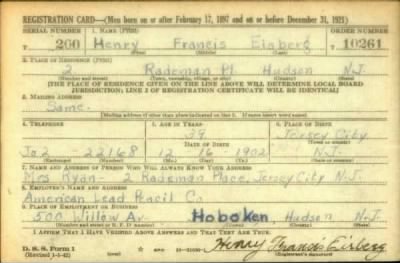 REGISTRATION CARD—(Men born on or after February 17, 1897 and on or before December 31, 1921)
SERIAL NUMBER 1. NAME (Print) ORDER NUMBER
T 200 Henry Francis Eisberg T 10261
(First) (Middle) (Last)
2. PLACE OF RESIDENCE (Print)
2 Rademan Pl. Hudson N.J.
(Number and street) (Town, township, village, or city) (County) (State)
[THE PLACE OF RESIDENCE GIVEN ON THE LINE ABOVE WILL DETERMINE LOCAL BOARD
JURISDICTION; LINE 2 OF REGISTRATION CERTIFICATE WILL BE IDENTICAL]
3. MAILING ADDRESS
Same.
[Mailing address if other than place indicated on line 2. If same insert word same]
4. TELEPHONE 5. AGE IN YEARS 6. PLACE OF BIRTH
39 Jersey City
DATE OF BIRTH
Jo2 - 22168 12 16 1902 N.J.
(Exchange) (Number) (Mo.) (Day) (Yr.) (State or country)
7. NAME AND ADDRESS OF PERSON WHO WILL ALWAYS KNOW YOUR ADDRESS
Mrs Ryan - 2 Rademan Place, Jersey City N.J.
8. EMPLOYER'S NAME AND ADDRESS
American Lead Pencil Co
9. PLACE OF EMPLOYMENT OR BUSINESS
500 Willow Av Hoboken Hudson N.J.
(Number and street or R. F. D. number) (Town) (County) (State)
I AFFIRM THAT I HAVE VERIFIED ABOVE ANSWERS AND THAT THEY ARE TRUE.
D. S. S. Form 1
(Revised 1-1-42)
Henry Francis Eisberg
(Registrant's signature)